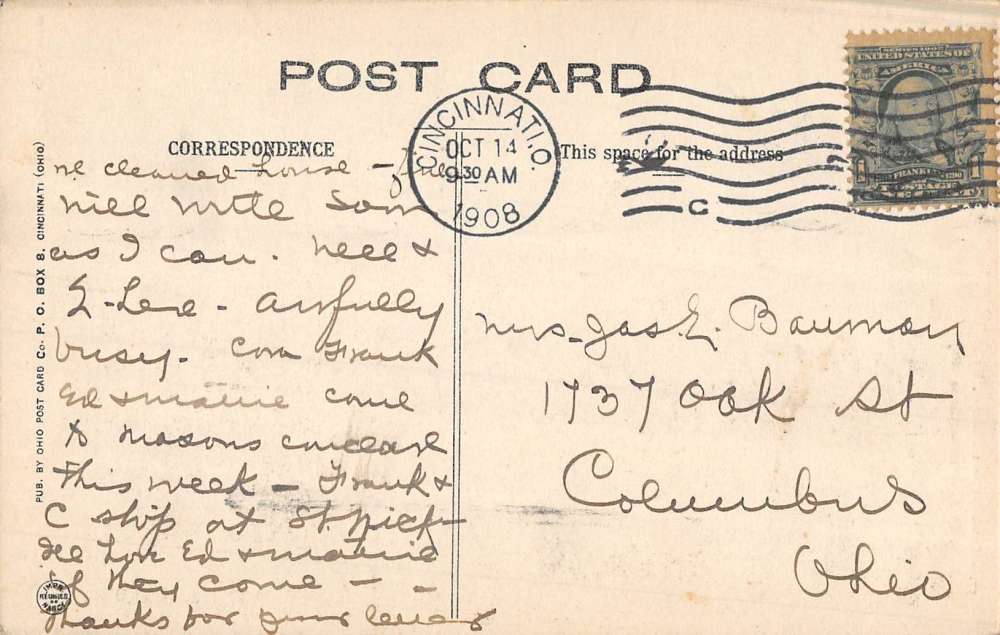 POST CARD
CORRESPONDENCE
This space for the address
CINCINNATI, O.
OCT 14
9 30 AM
1908
C
SERIES 1902
UNITED STATES OF
AMERICA
FRANKLIN
cleaned house -
will write soon
as I can. Nell &
awfully
busy. Frank
Ed & Mattie come
to Masons conclave
this week - Frank &
C stop at St Nick -
Ed & Mattie
if they come - -
Thanks for your letter
Mrs. Jas. E. Bauman
1737 Oak St
Columbus
Ohio
PUB. BY OHIO POST CARD CO. P. O. BOX 8. CINCINNATI (OHIO)